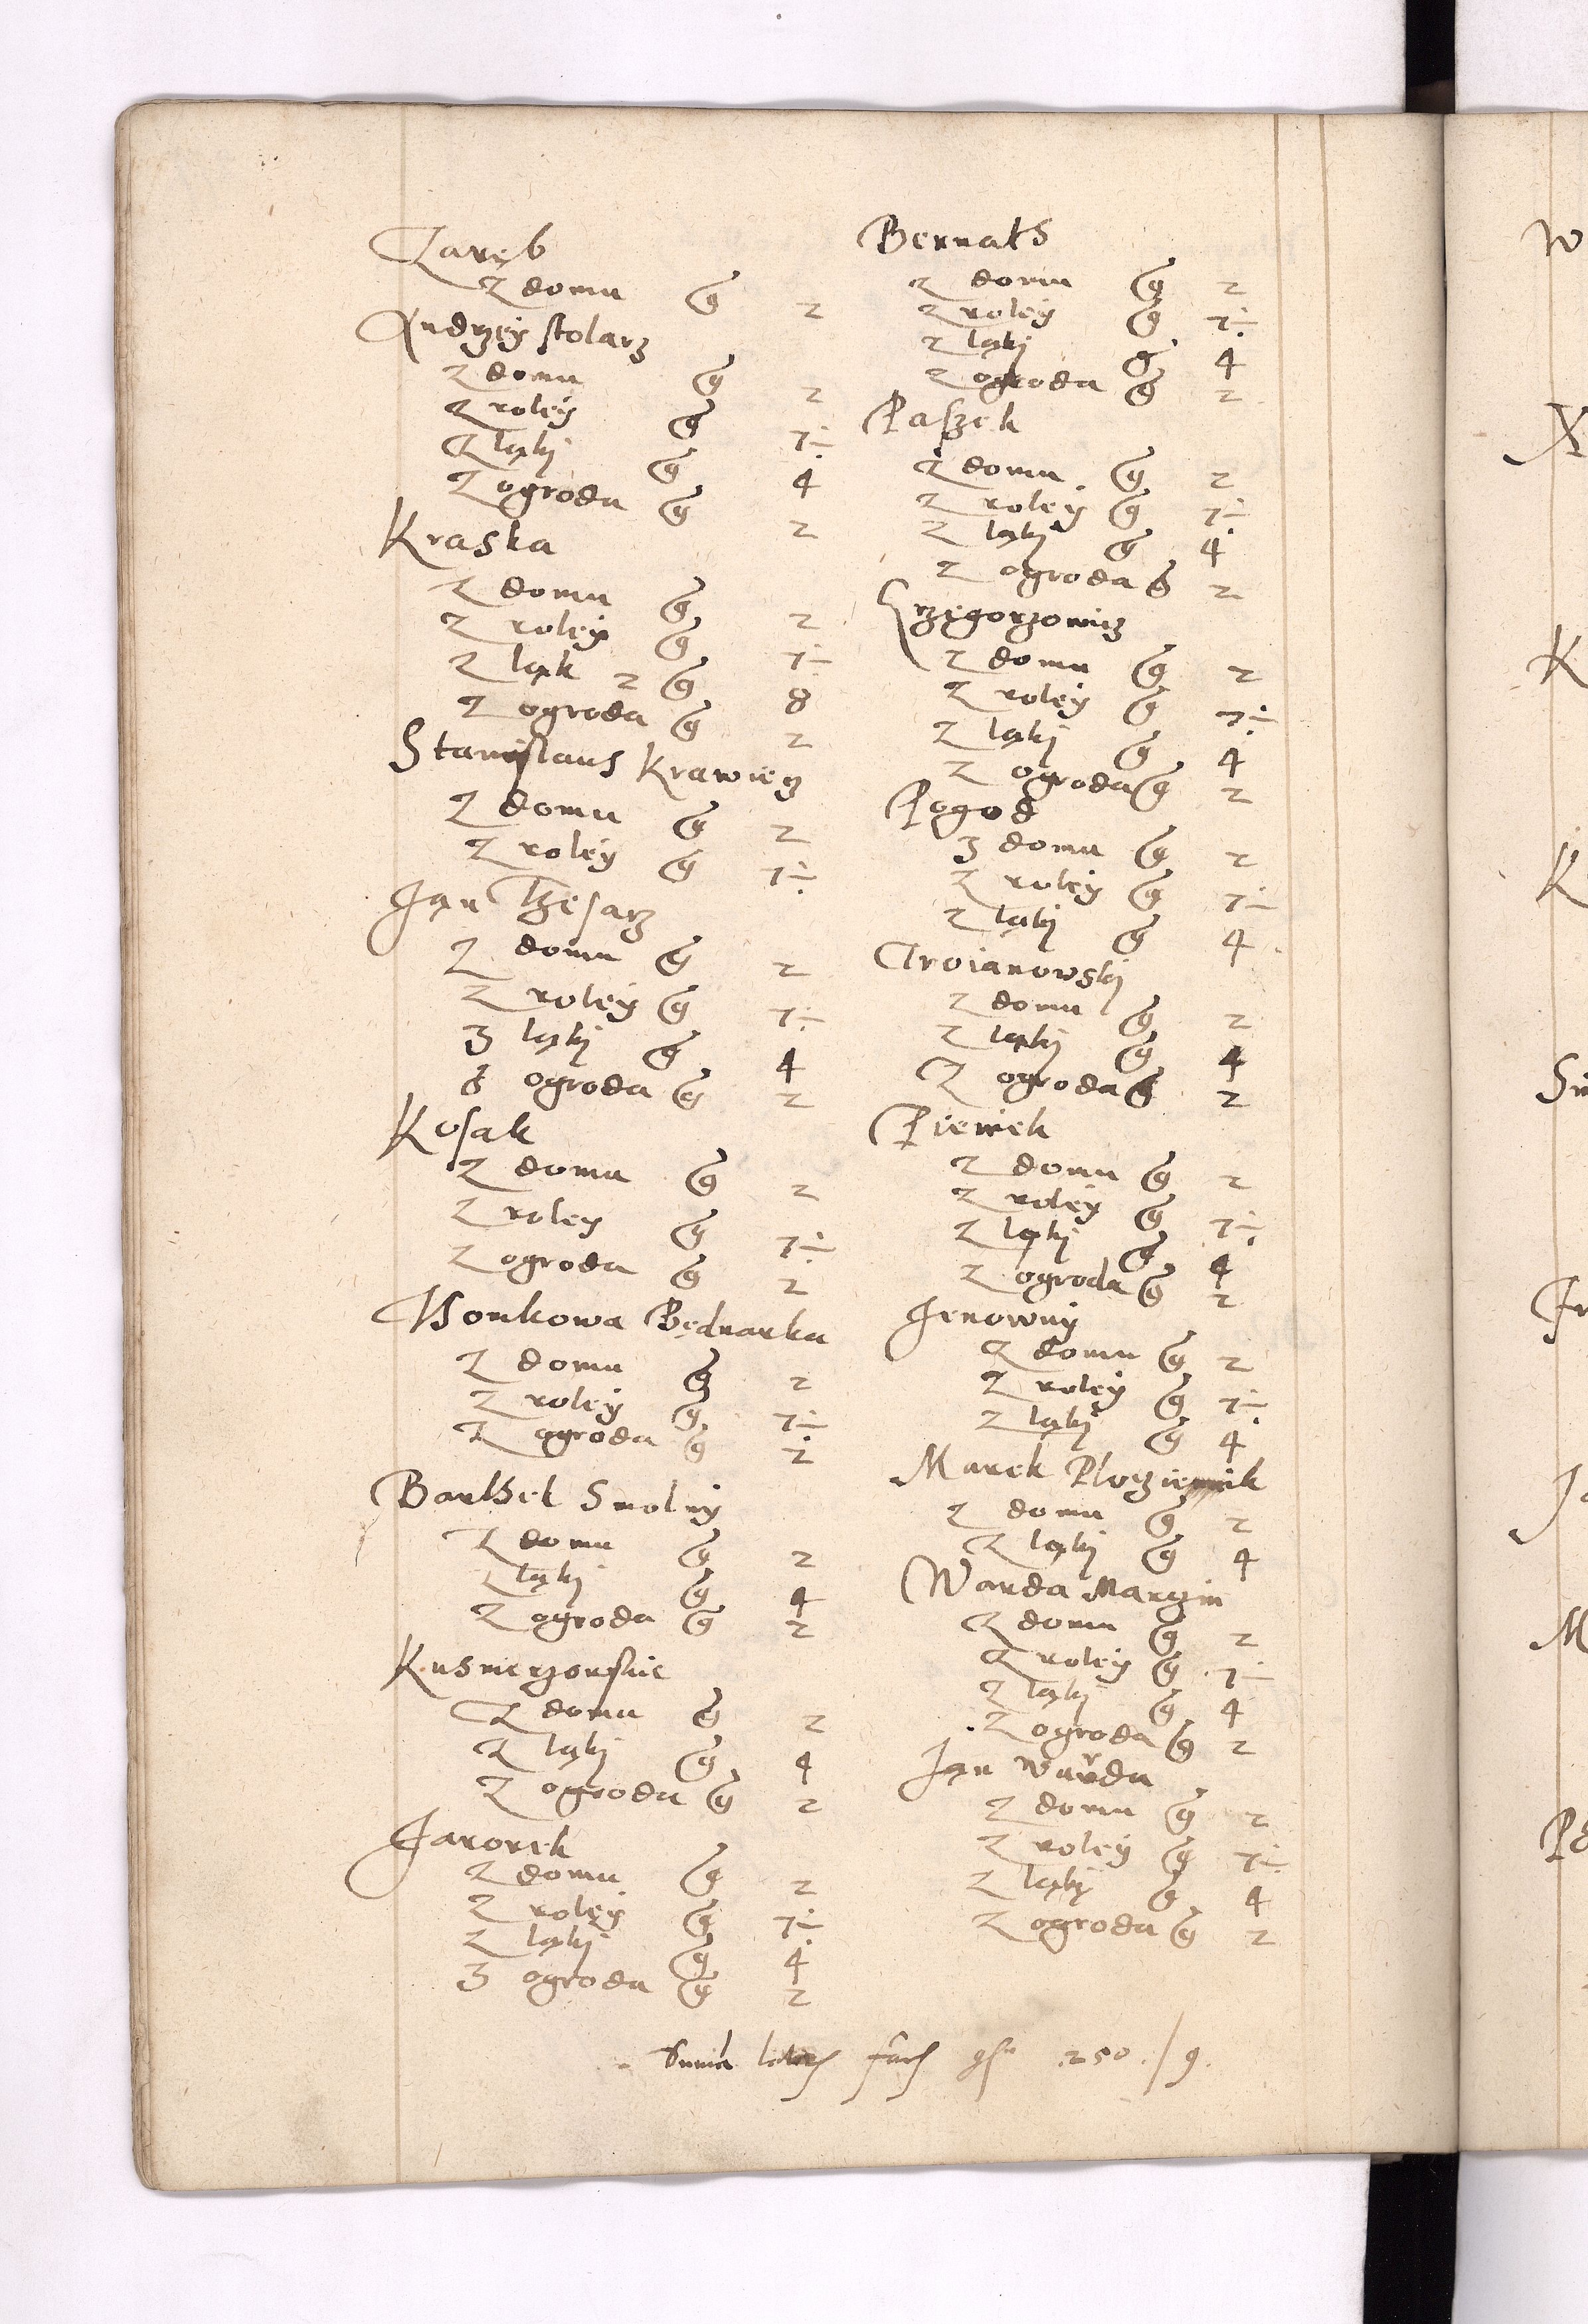 Zaręb
Z domu g 2
Andrzey stolarz
Z domu g 2
Z roley g 7÷
Z ląkj g 4
Z ogroda g 2
Kraska
Z domu g 2
Z roley g 7÷
Z ląk 2 g 8
Z ogroda g 2
Stanislaus Krawiecz
Z domu g 2
Z roley g 7÷
Jan
Z domu g 2
Z roley g 7÷
3 ląkj g 4
Z ogroda g 2
Kosak
Z domu g 2
Z roley g 7÷
Z ogroda g 2
Bednarka
Z domu g 2
Z roley g 7÷
Z ogroda g 2
Barthek Smolny
Z domu g 2
Z ląkj g 4
Z ogroda g 2
Kusnierzowskie
Z domu g 2
Z ląkj g 4
Z ogroda g 2
Jarorek
Z domu g 2
Z roley g 7÷
Z ląkj g 4
3 ogroda g 2
Bernath
Z domu g 2
Z roley g 7÷
Z ląkj g 4
Z ogroda g 2
Paszek
Z domu g 2
Z roley g 7÷
Z ląkj g 4
Z ogroda g 2
Grzegorzowicz
Z domu g 2
Z roley g 7÷
Z ląkj g 4
Z ogroda g 2
Pogod
3 domu g 2
Z roley g 7÷
Z ląkj g 4
Troianowskj
Z domu g 2
Z ląkj g 4
Z ogroda g 2
Pieniek
Z domu g 2
Z roley g 7÷
Z ląkj g 4
Z ogroda g 2
Jenowny
Z domu g 2
Z roley g 7÷
Z ląkj g 4
Marek
Z domu g 2
Z ląkj g 4
Warda Marczin
Z domu g 2
Z roley g 7÷
Z ląkj g 4
Z ogroda g 2
Jan Warda
Z domu g 2
Z roley g 7÷
Z ląkj g 4
Z ogroda g 2
Suma 250 / 9